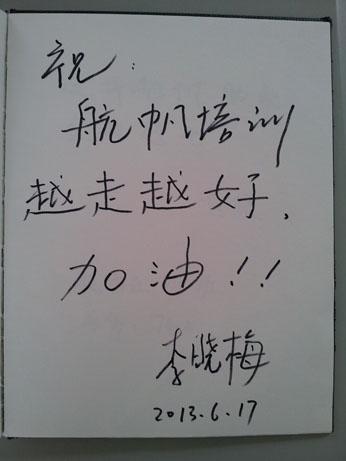 祝:
航帆培训
越走越好.
加油!!
李晓梅
2013.6.17